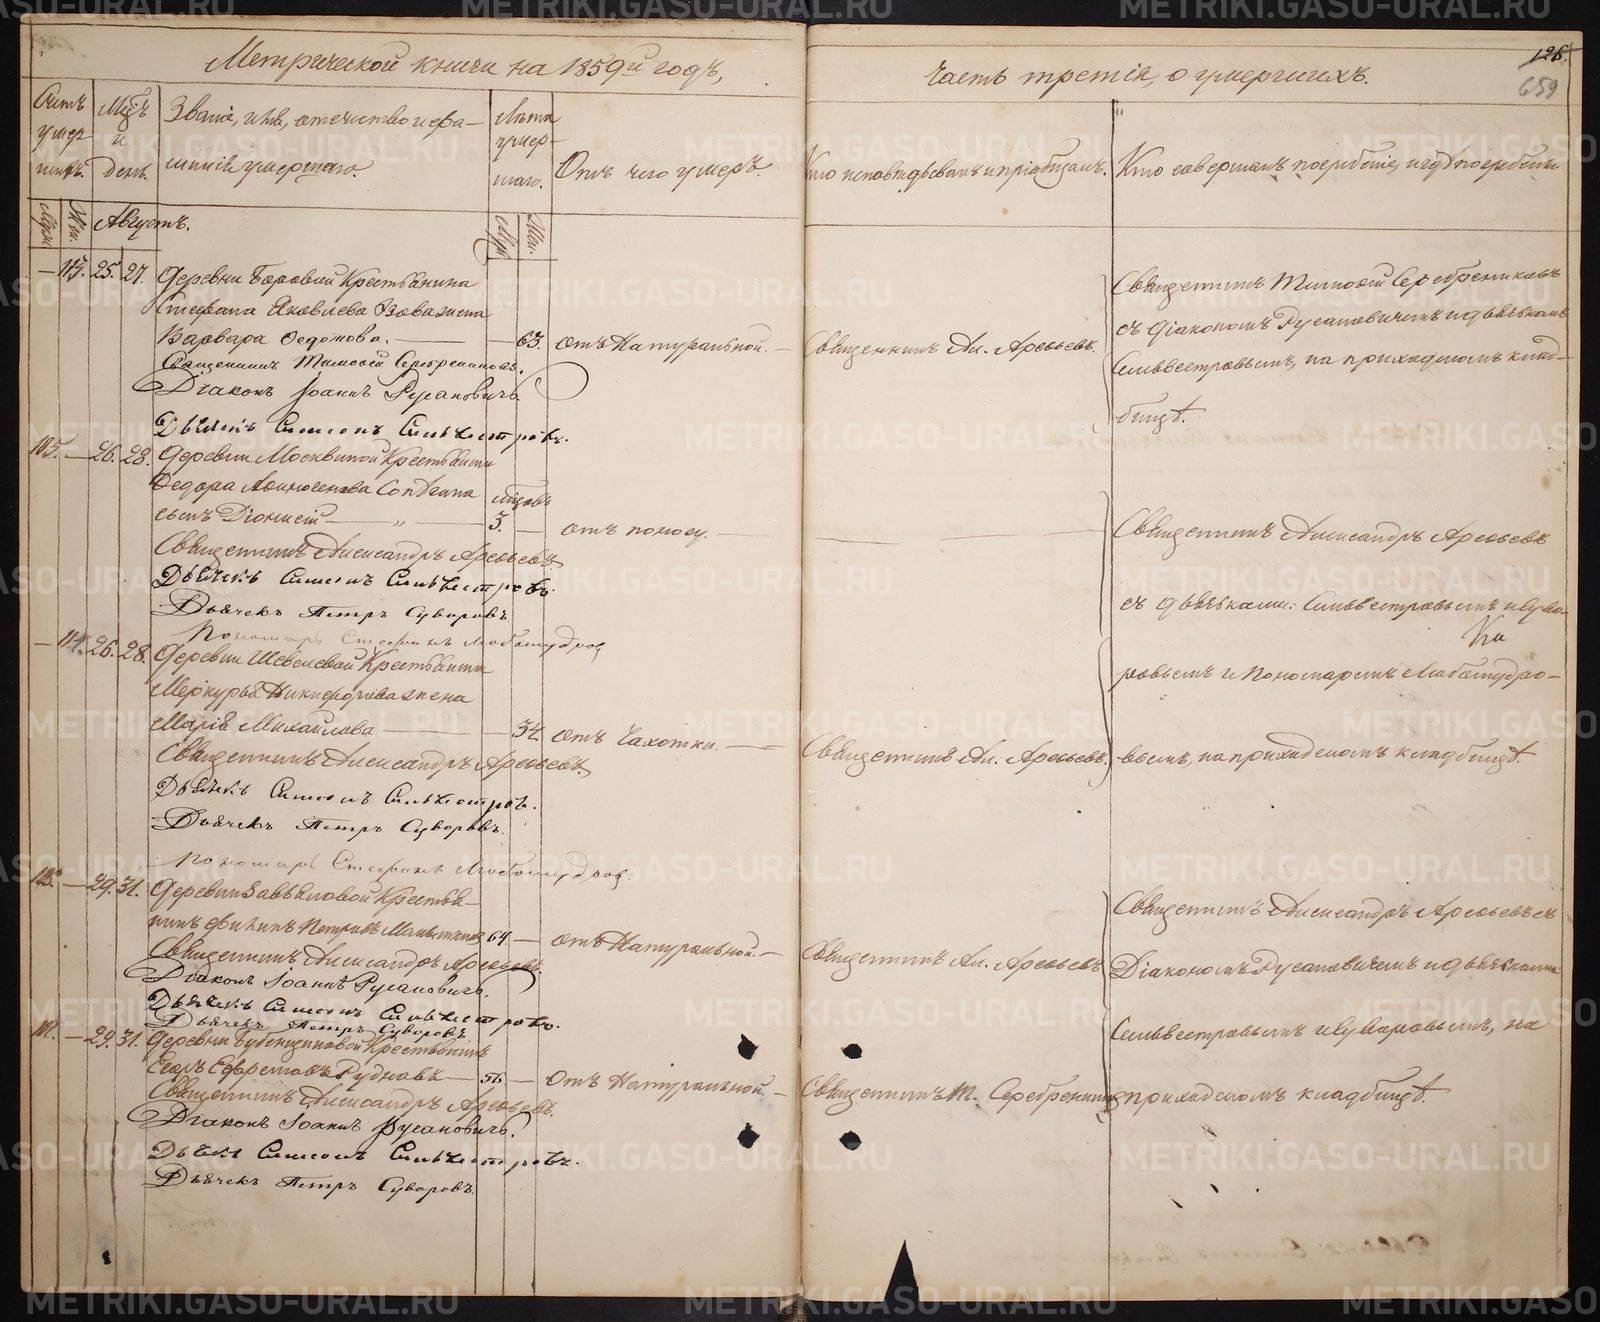 Метрической книги на 1859й годъ,
Счетъ умершихъ.
Мѣсяцъ и день.
Званіе, имя, отчество и фа-
милія умершаго.
Лѣта умер-
шаго.
Отъ чего умеръ.
Муж.
Жен.
Августъ.
Муж.
Жен.
— 113. 25. 27. Деревни Боровой Крестьянина
Стефана Яковлева жена
Варвара Федотова. — 63. отъ Натуральной. —
Священникъ Тимофей Серебрениковъ.
Діаконъ Іоаннъ Русановичъ
Дьячекъ Симеонъ Сильвестровъ.
105. — 26. 28. Деревни Москвиной Крестьянина
Федора сынъ Діонисій — мѣсяцовъ 3. — отъ поносу. —
Священникъ Александръ Арефьевъ
Дьячекъ Симеонъ Сильвестровъ.
Дьячекъ Петръ Суворовъ
Пономарь Стефанъ Любомудров
— 114. 26. 28. Деревни Шевелевой Крестьянина
Меркурья Никифорова жена
Марія Михайлова — 34. отъ Чахотки. —
Священникъ Александръ Арефьевъ.
Дьячекъ Симеонъ Сильвестровъ.
Дьячекъ Петръ Суворовъ.
Пономарь Стефанъ Любомудров.
— 29. 31. Деревни Завьяловой Крестья-
нинъ Петровъ 64. — отъ Натуральной. —
Священникъ Александръ Арефьевъ
Діаконъ Іоаннъ Русановичъ.
Дьячекъ Симеонъ Сильвестровъ.
Дьячекъ Петръ Суворовъ.
— 29. 31. Деревни Крестьянинъ
Егоръ Ефремовъ Рудновъ — 56. — Отъ Натуральной. —
Священникъ Александръ Арефьевъ.
Діаконъ Іоаннъ Русановичъ.
Дьячекъ Симеонъ Сильвестровъ.
Дьячекъ Петръ Суворовъ.
126.
659
Часть третія, о умершихъ.
Кто исповѣдывалъ и пріобщалъ.
Кто совершалъ погребеніе, и гдѣ погребены
Священникъ Ал. Арефьевъ.
Священникъ Тимофей Серебрениковъ
съ Діакономъ Русановичемъ и дьячкомъ
Сильвестровымъ, на приходскомъ клад-
бищѣ.
Священникъ Александръ Арефьевъ
съ дьячками: Сильвестровымъ и Суво-
ровымъ и Пономаремъ Любомудро-
Священникъ Ал. Арефьевъ.
вымъ, на приходскомъ кладбищѣ.
Священникъ Александръ Арефьевъ съ
Священникъ Ал. Арефьевъ
Діакономъ Русановичемъ и дьячками
Сильвестровымъ и Суворовымъ, на
Священникъ Т. Серебрениковъ
приходскомъ кладбищѣ.
METRIKI.GASO-URAL.RU